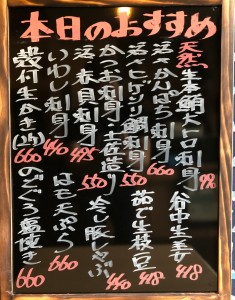 本日のおすすめ
天然 生本鮪大トロ刺身 990
活〆かんぱち刺身 660
活〆ヒゲソリ鯛刺身 550
かつお刺身 土佐造り 550
活〆赤貝刺身 495
いわし刺身 440
殻付生かき(2ヶ) 660
谷中生姜 418
茹で生枝豆 418
冷し豚しゃぶ 440
はも天ぷら 660
のどぐろ塩焼き 660